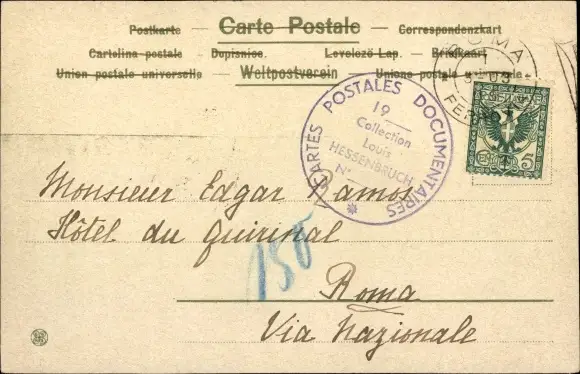 Postkarte — Carte Postale — Correspondenzkart
Cartolina postale — Dopisnice. — Levelező-Lap. — Briefkaart
Union postale universelle — Weltpostverein — Unione postale
ROMA
FERR
5
CARTES POSTALES DOCUMENTAIRES
19
Collection
Louis
HESSENBRUCH
N°
Monsieur Edgar Ramos
Hôtel du Quirinal
150
Roma
Via Nazionale